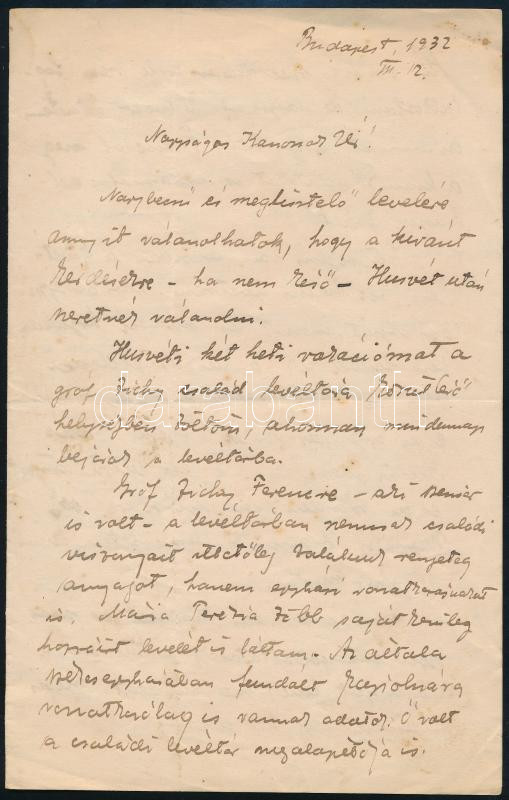 Budapest, 1932
III. 12.
Nagyságos Kanonok Úr!
Nagybecsű és megtisztelő levelére
annyit válaszolhatok, hogy a kívánt
kérdésekre – ha nem késő – Husvét után
szeretnék válaszolni.
Husvéti két heti vakációmat a
gróf Zichy család levéltára közelében
helységben töltöm, ahonnan mindennap
bejárok a levéltárba.
Gróf Zichy Ferencre – aki senior
is volt – a levéltárban nemcsak családi
viszonyait illetőleg találunk rengeteg
anyagot, hanem egyházi vonatkozásuakat
is. Mária Terézia több saját kezüleg
hozzáirt levelét is láttam. Az általa
fundált
vonatkozólag is vannak adatok. Ő volt
a családi levéltár megalapítója is.
darabanth